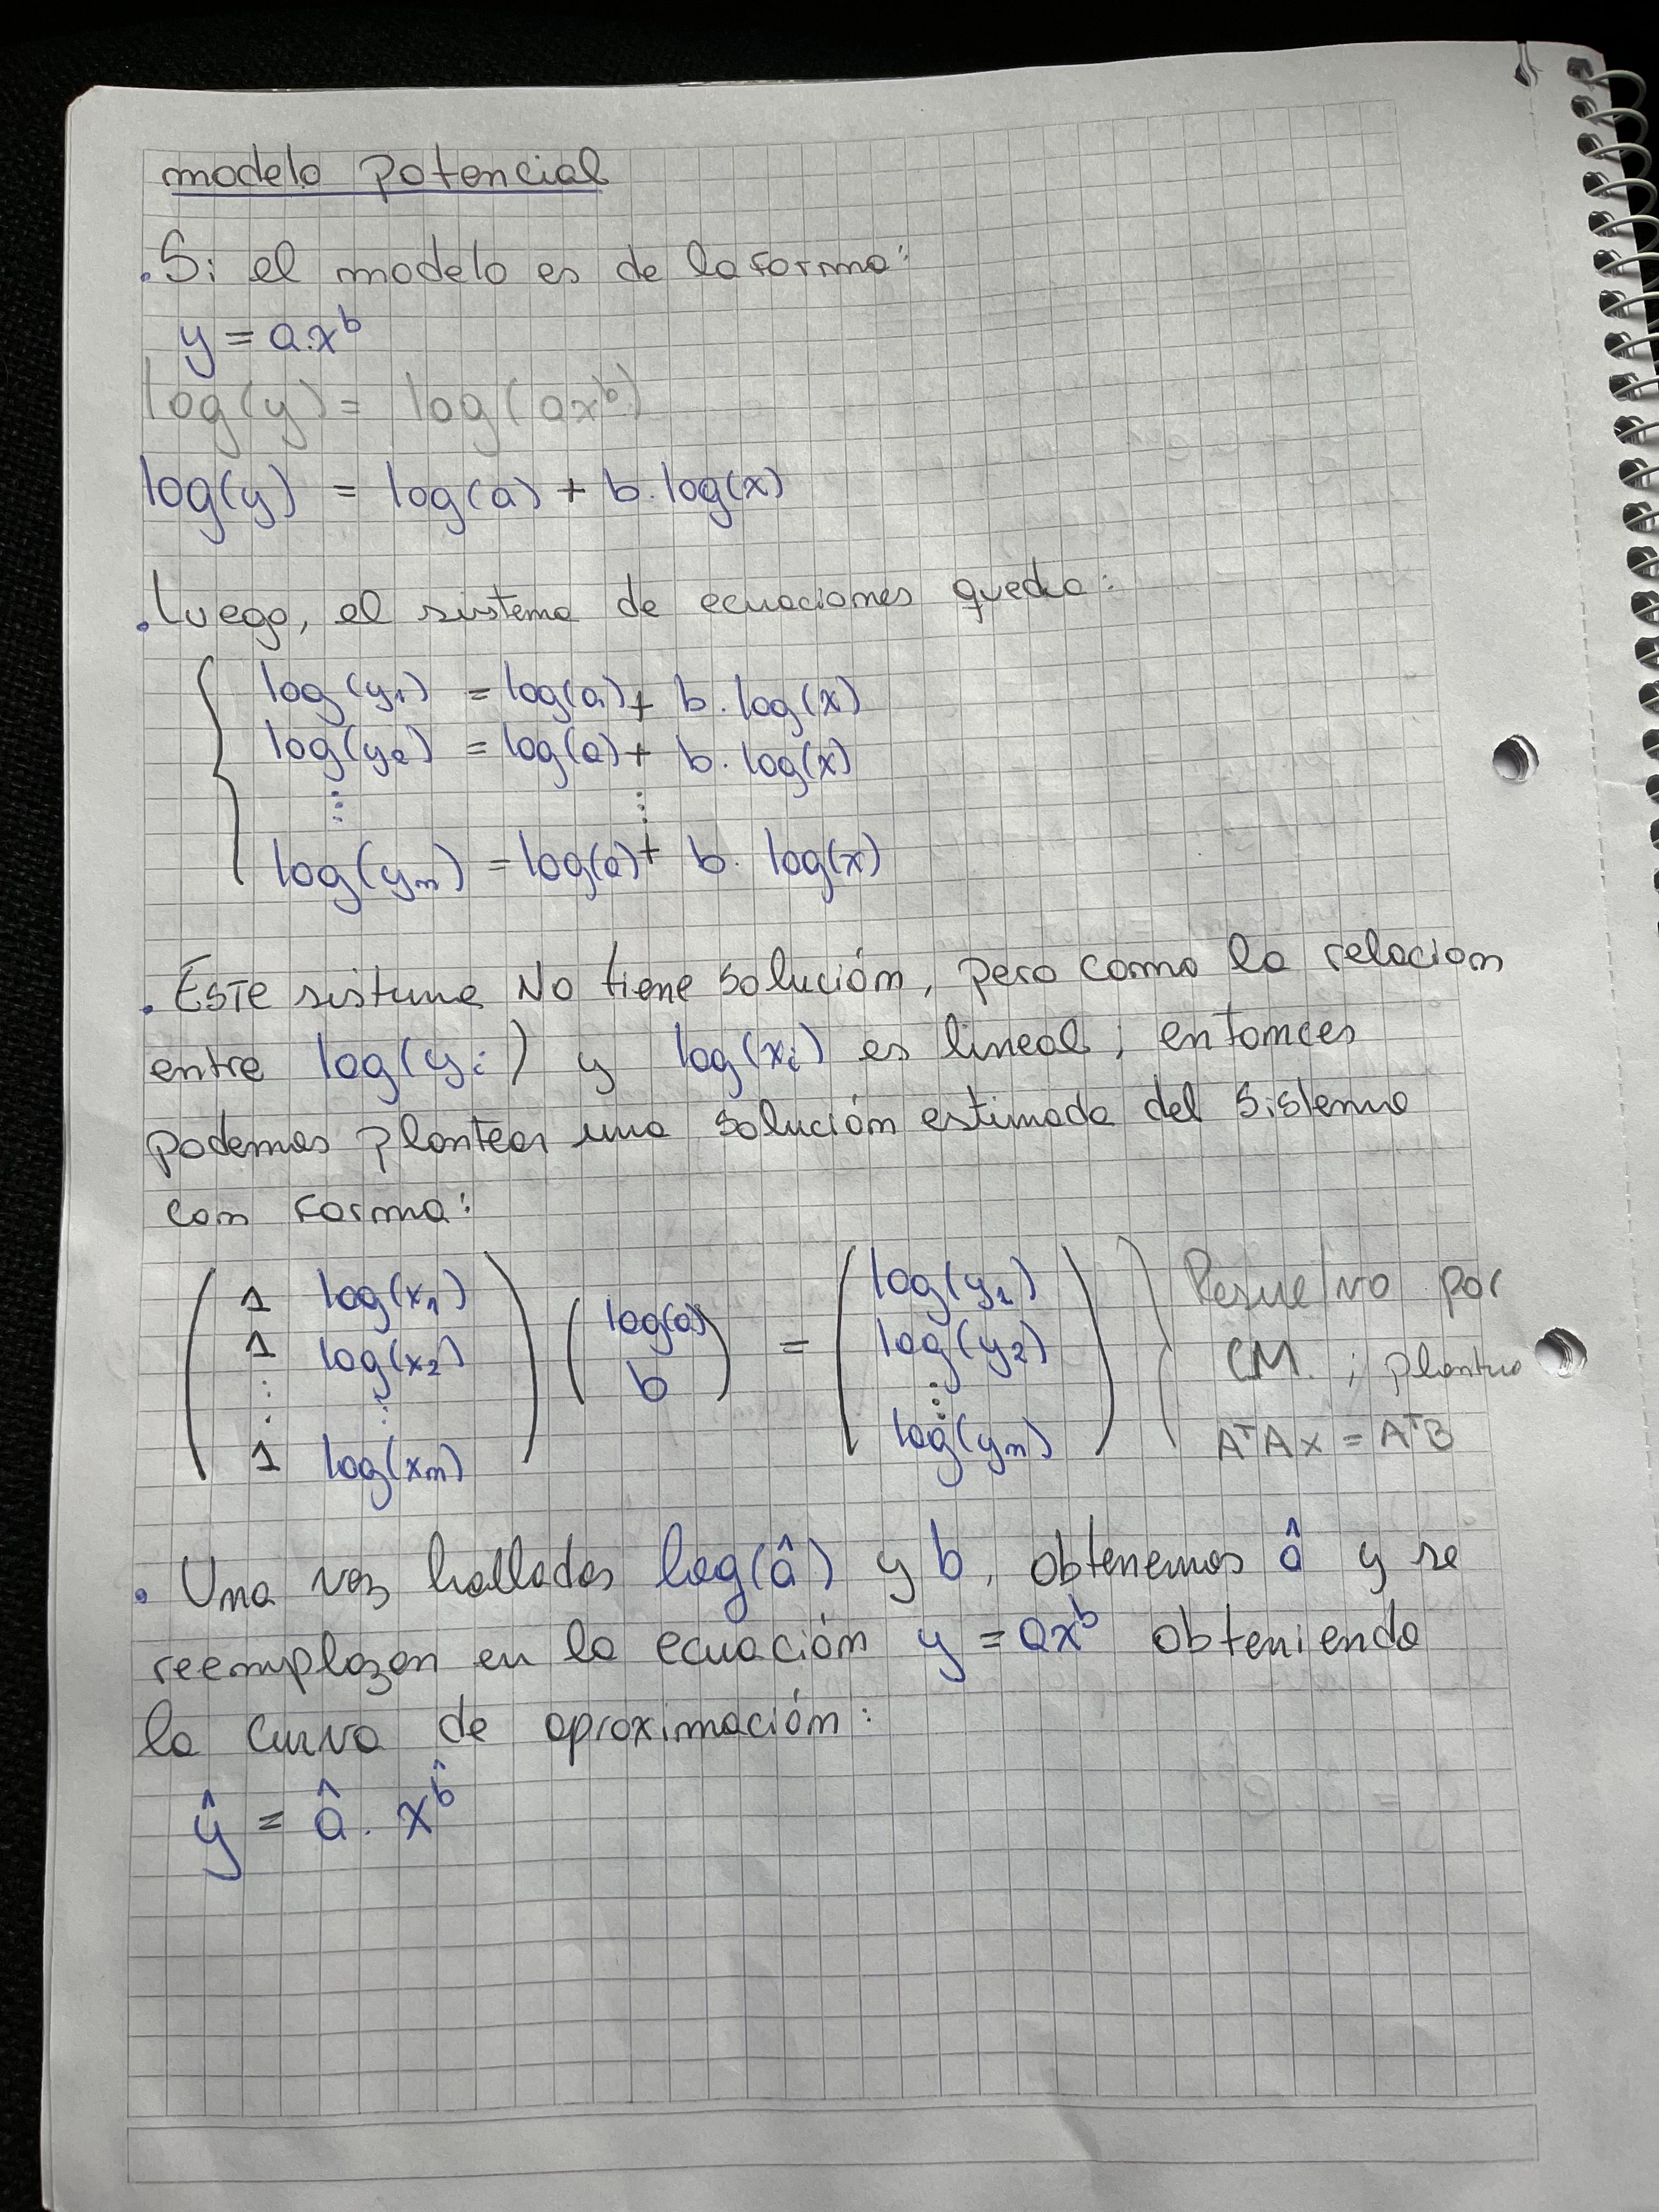 modelo potencial
. Si el modelo es de la forma:
y = a.x^b
log(y) = log(ax^b)
log(y) = log(a) + b.log(x)
. Luego, el sistema de ecuaciones queda:
log(y₁) = log(a) + b. log(x)
log(y₂) = log(a) + b. log(x)
⋮ ⋮
log(yₙ) = log(a) + b. log(x)
. Este sistema NO tiene solución, pero como la relacion
entre log(yᵢ) y log(xᵢ) es lineal; entonces
podemos plantear una solución estimada del sistema
con forma:
( 1 log(x₁) ) ( log(a) ) = ( log(y₁) ) Resuelvo por
1 log(x₂) b log(y₂) CM. ; planteo
⋮ ⋮ ⋮
1 log(xₙ) log(yₙ) AᵀAx = AᵀB
. Una vez hallados log(â) y b, obtenemos â y se
reemplazan en la ecuación y = ax^b obteniendo
la curva de aproximación:
ŷ = â. x^b̂